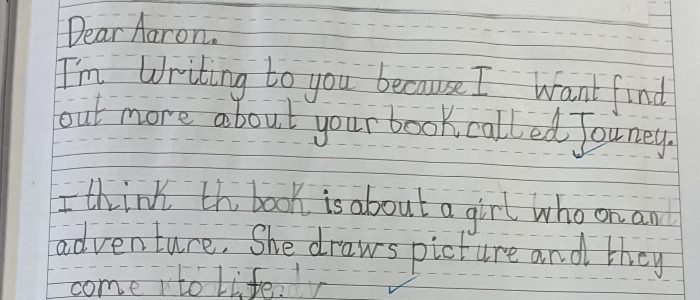 Dear Aaron.
I'm Writing to you because I Want find
out more about your book called Jouney.
I think th book is about a girl who on an
adventure. She draws picture and they
come to Life.